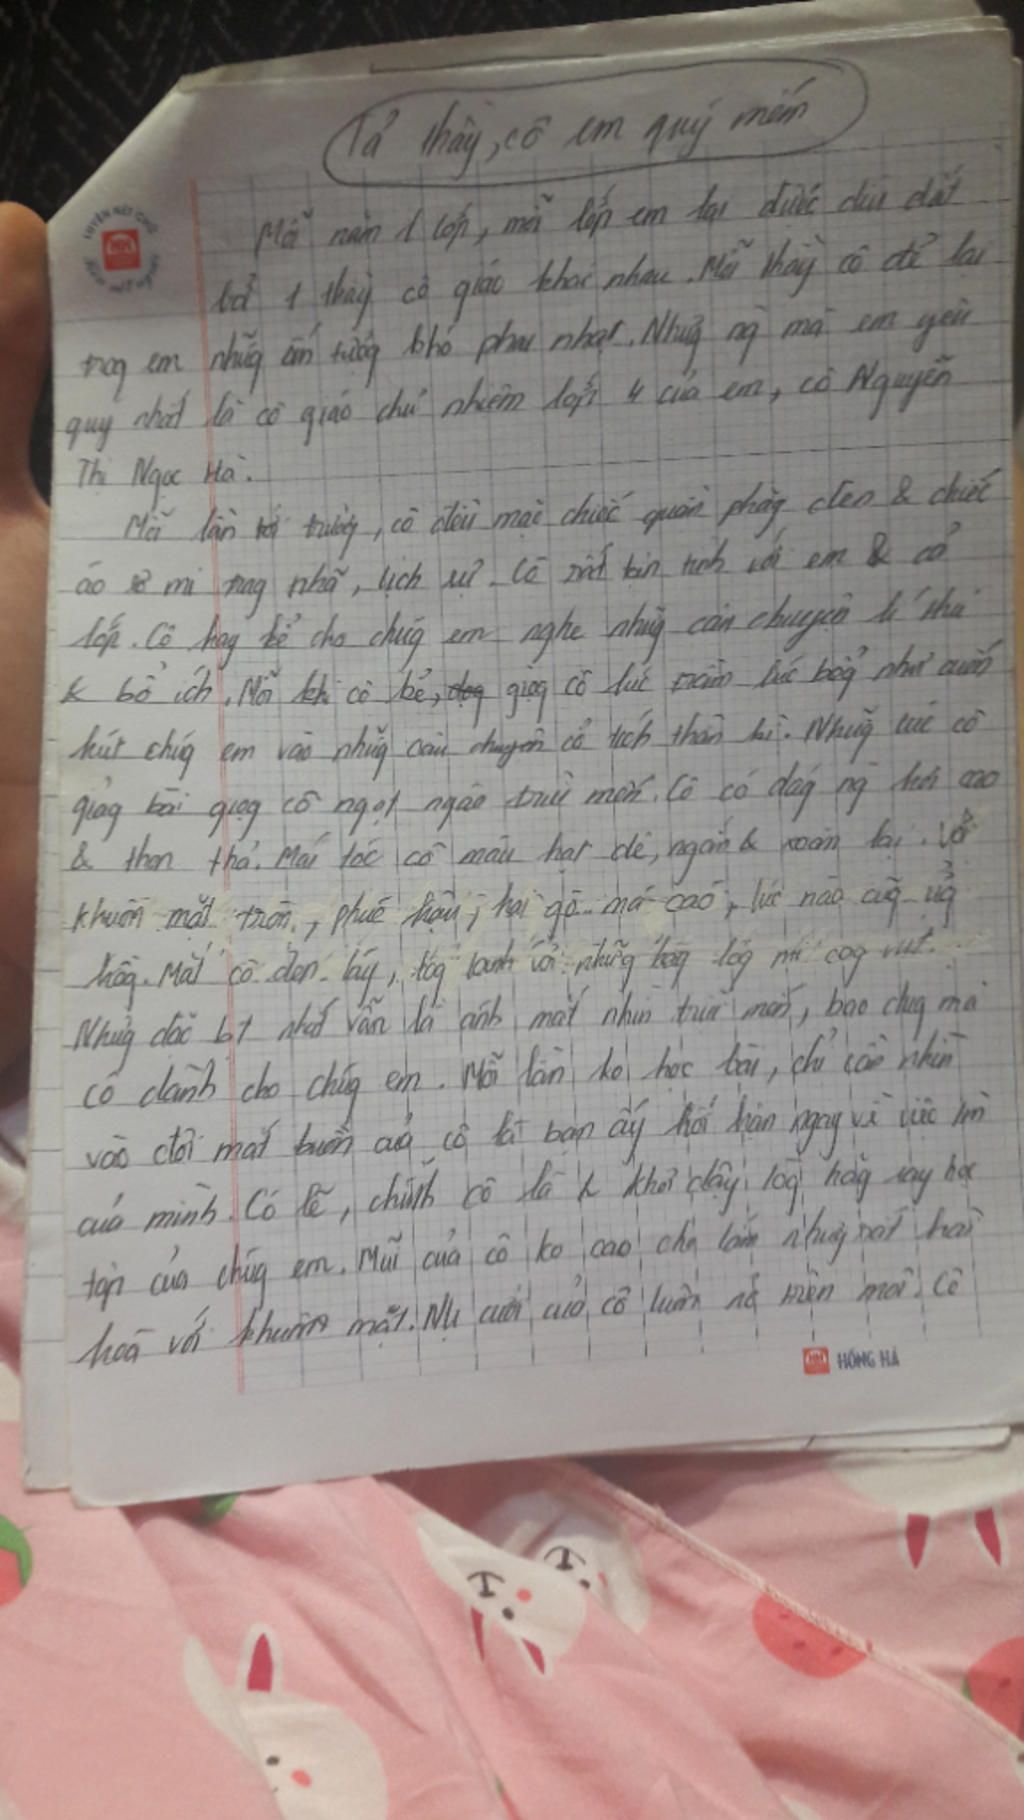 Tả thầy, cô em quý mến
LUYỆN NÉT CHỮ
RÈN NẾT NGƯỜI
Mỗi năm 1 lớp, mỗi lớp em lại được dìu dắt
bởi 1 thầy cô giáo khác nhau. Mỗi thầy cô để lại
trog em nhữg ấn tượg khó phai nhạt. Nhưg ng mà em yêu
quý nhất là cô giáo chủ nhiệm lớp 4 của em, cô Nguyễn
Thị Ngọc Hà.
Mỗi lần tới trườg, cô đều mặc chiếc quần phẳg đen & chiếc
áo sơ mi trag nhã, lịch sự. Cô rất tận tình với em & cả
lớp. Cô hay kể cho chúg em nghe nhữg câu chuyện lí thú
& bổ ích. Mỗi khi cô kể, giọg cô lúc trầm lúc bổg như cuốn
hút chúg em vào nhữg câu chuyện cổ tích thần kì. Nhữg lúc cô
giảg bài giọg cô ngọt ngào trìu mến. Cô có dág ng hơi cao
& thon thả. Mái tóc cô màu hạt dẻ, ngắn & xoăn lại. Với
khuôn mặt tròn, phúc hậu, hai gò má cao, lúc nào cũg ửg
hồg. Mắt cô đen láy, lóg lanh với nhữg hàg lôg mi cog vút.
Nhưg đặc bt nhất vẫn là ánh mắt nhìn trìu mến, bao dug mà
cô dành cho chúg em. Mỗi lần ko học bài, chỉ cần nhìn
vào đôi mắt buồn của cô là bạn ấy hối hận ngay vì việc làm
của mình. Có lẽ, chính cô là khơi dậy lòg hăg say học
tập của chúg em. Mũi của cô ko cao cho lắm nhưg rất hài
hoà với khuôn mặt. Nụ cười của cô luôn nở trên môi. Cô
HỒNG HÀ